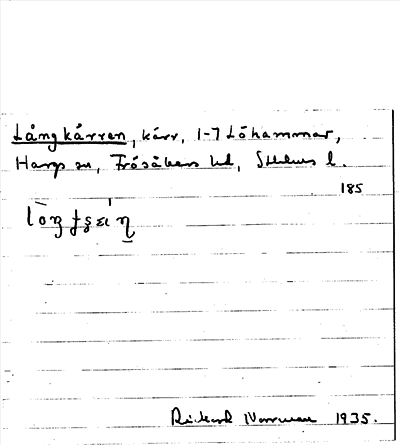 Långkärren, kärr, 1-7 Löhammar,
Hargs sn, Frösåkers hd, Sthlms l.
185
Rickard Norrman 1935.